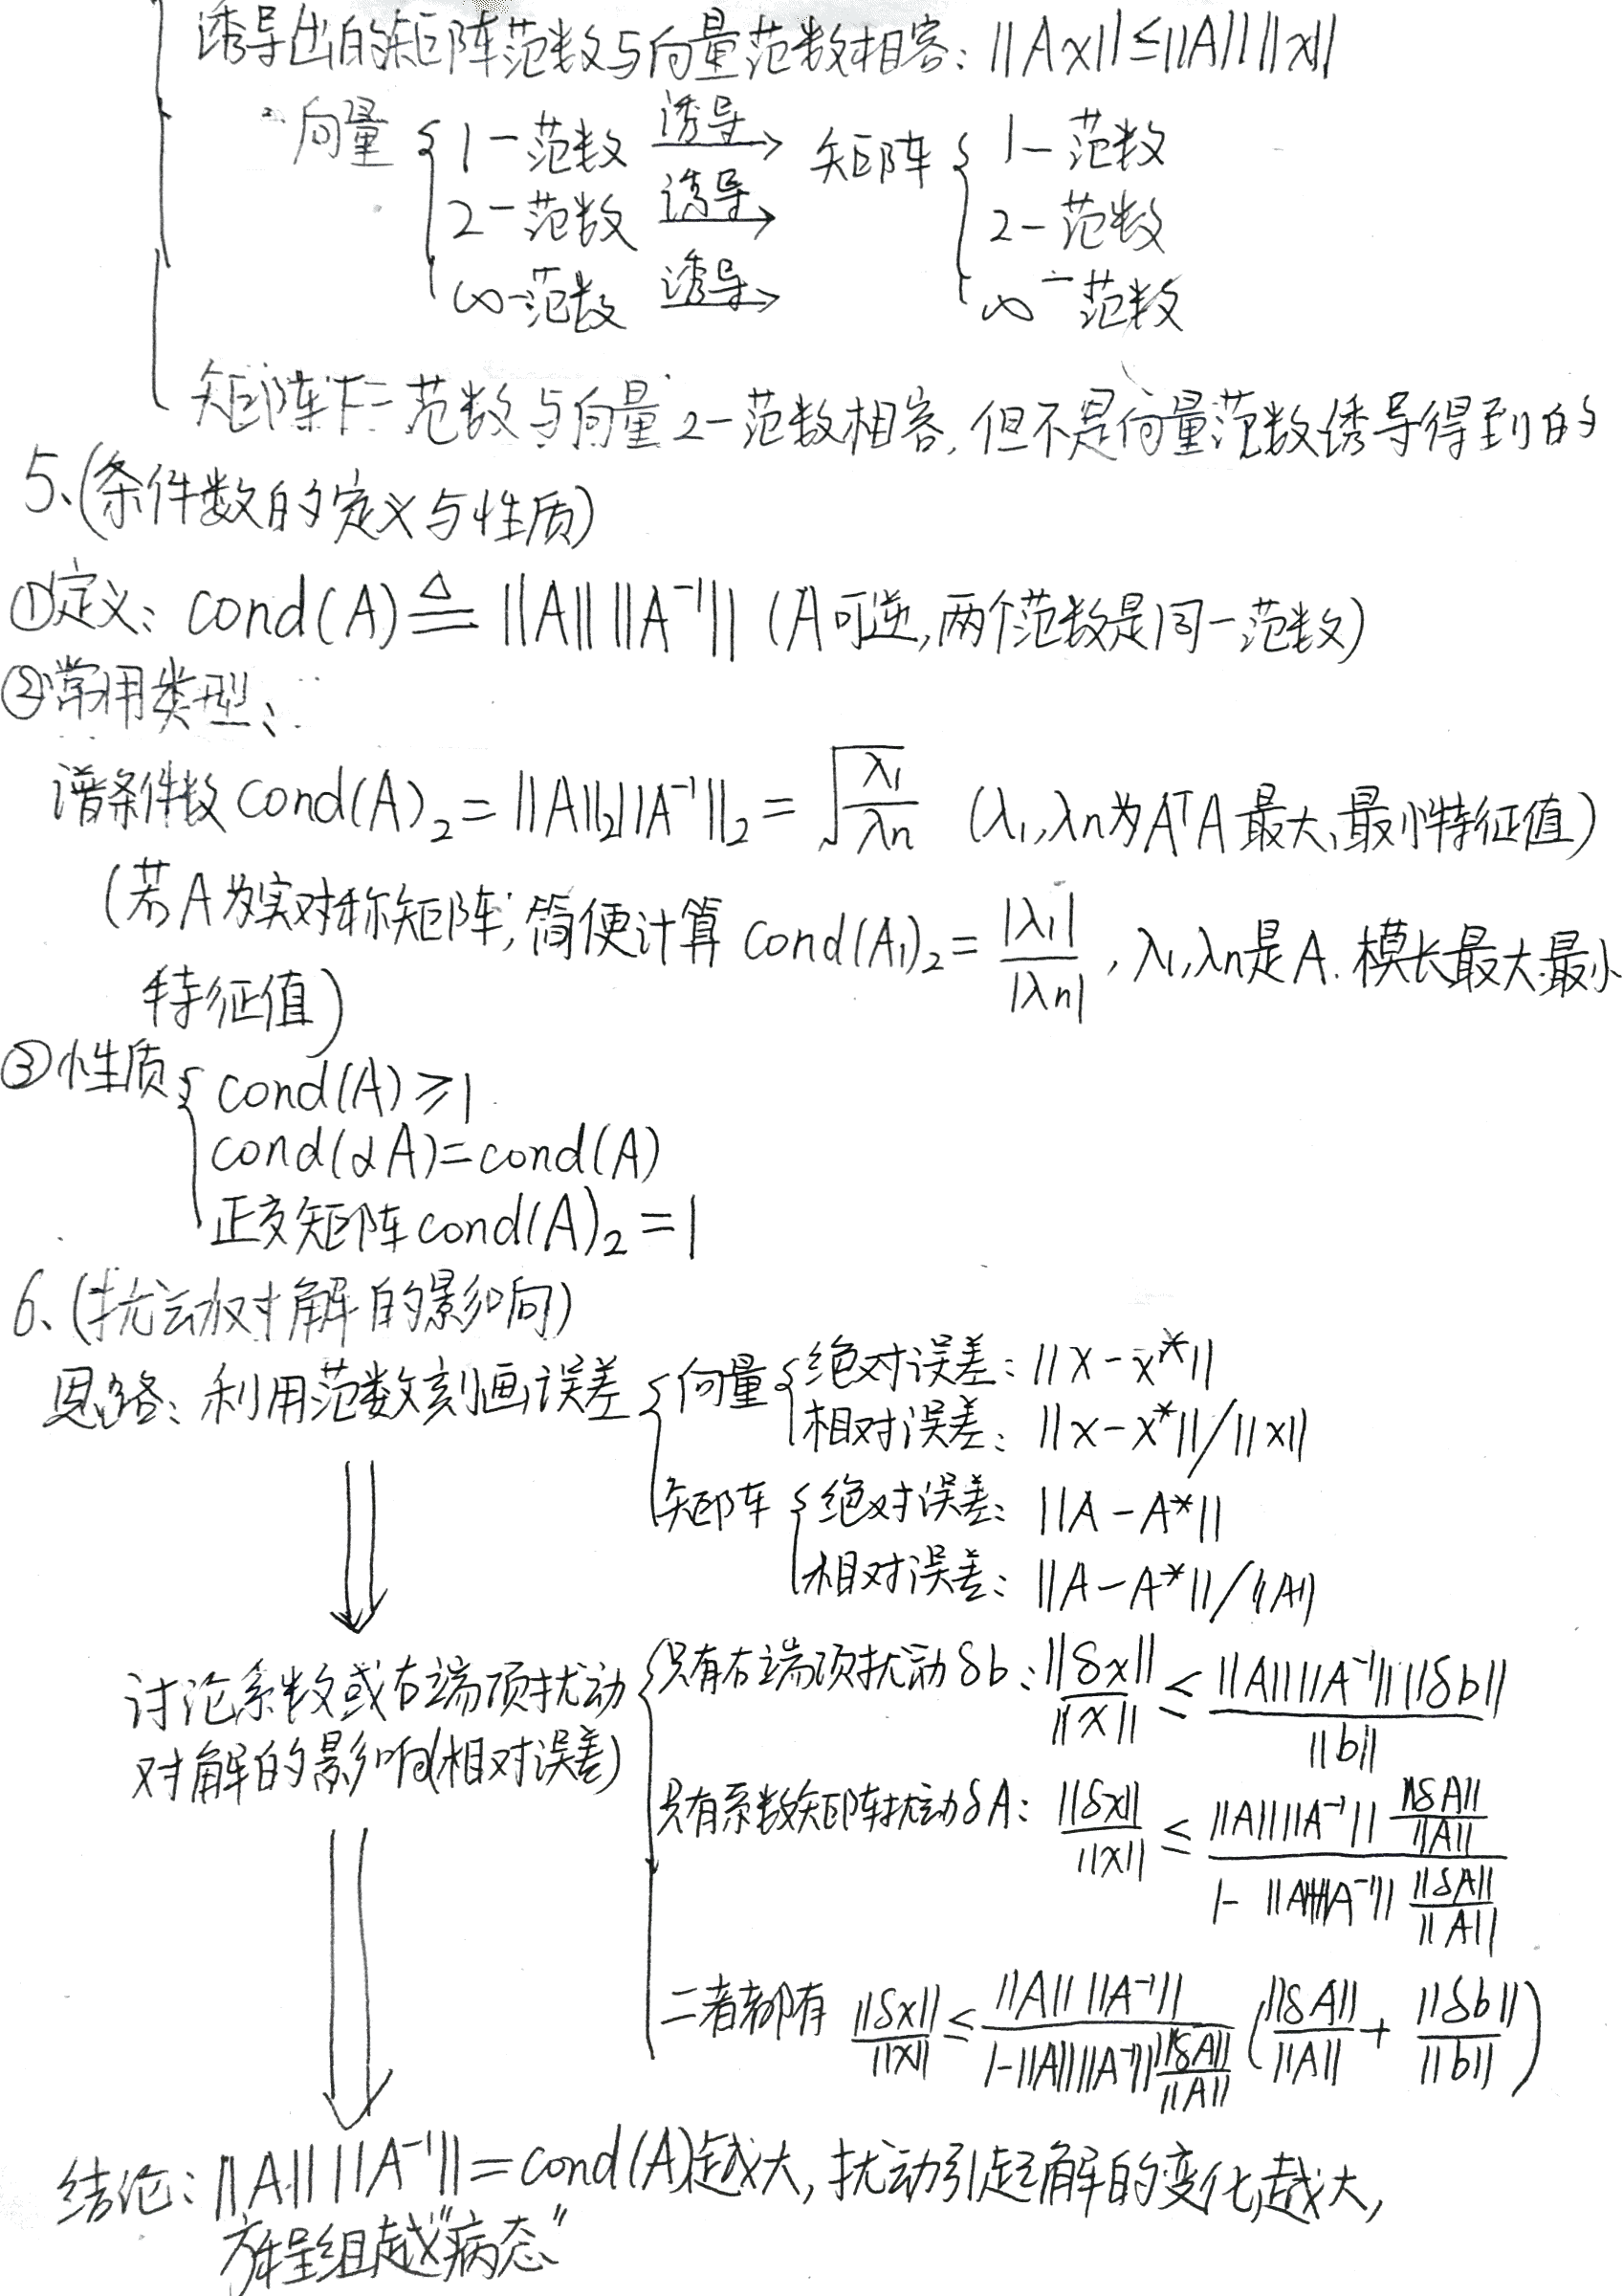 诱导出的矩阵范数与向量范数相容：||Ax||≤||A|| ||x||
向量 { 1-范数 诱导→ 矩阵 { 1-范数
2-范数 诱导→ 2-范数
∞-范数 诱导→ ∞-范数
矩阵F-范数与向量2-范数相容，但不是向量范数诱导得到的
5、(条件数的定义与性质)
①定义：cond(A)≜||A|| ||A⁻¹|| (A可逆，两个范数是同一范数)
②常用类型：
谱条件数cond(A)₂=||A||₂||A⁻¹||₂=√(λ₁/λn) (λ₁,λn为AᵀA最大、最小特征值)
(若A为实对称矩阵，简便计算 cond(A₁)₂=|λ₁|/|λn|，λ₁,λn是A.模长最大.最小
特征值)
③性质 { cond(A)≥1
cond(αA)=cond(A)
正交矩阵cond(A)₂=1
6、(扰动对解的影响)
思路：利用范数刻画误差 { 向量 { 绝对误差：||x-x*||
相对误差：||x-x*||/||x||
矩阵 { 绝对误差：||A-A*||
相对误差：||A-A*||/||A||
讨论系数或右端项扰动 { 只有右端项扰动δb：||δx||/||x|| ≤ ||A|| ||A⁻¹|| ||δb||/||b||
对解的影响(相对误差)
只有系数矩阵扰动δA：||δx||/||x|| ≤ (||A|| ||A⁻¹|| ||δA||/||A||)/(1-||A|| ||A⁻¹|| ||δA||/||A||)
二者都有 ||δx||/||x|| ≤ ||A|| ||A⁻¹||/(1-||A|| ||A⁻¹|| ||δA||/||A||) (||δA||/||A|| + ||δb||/||b||)
结论：||A|| ||A⁻¹||=cond(A)越大，扰动引起解的变化越大，
方程组越"病态"